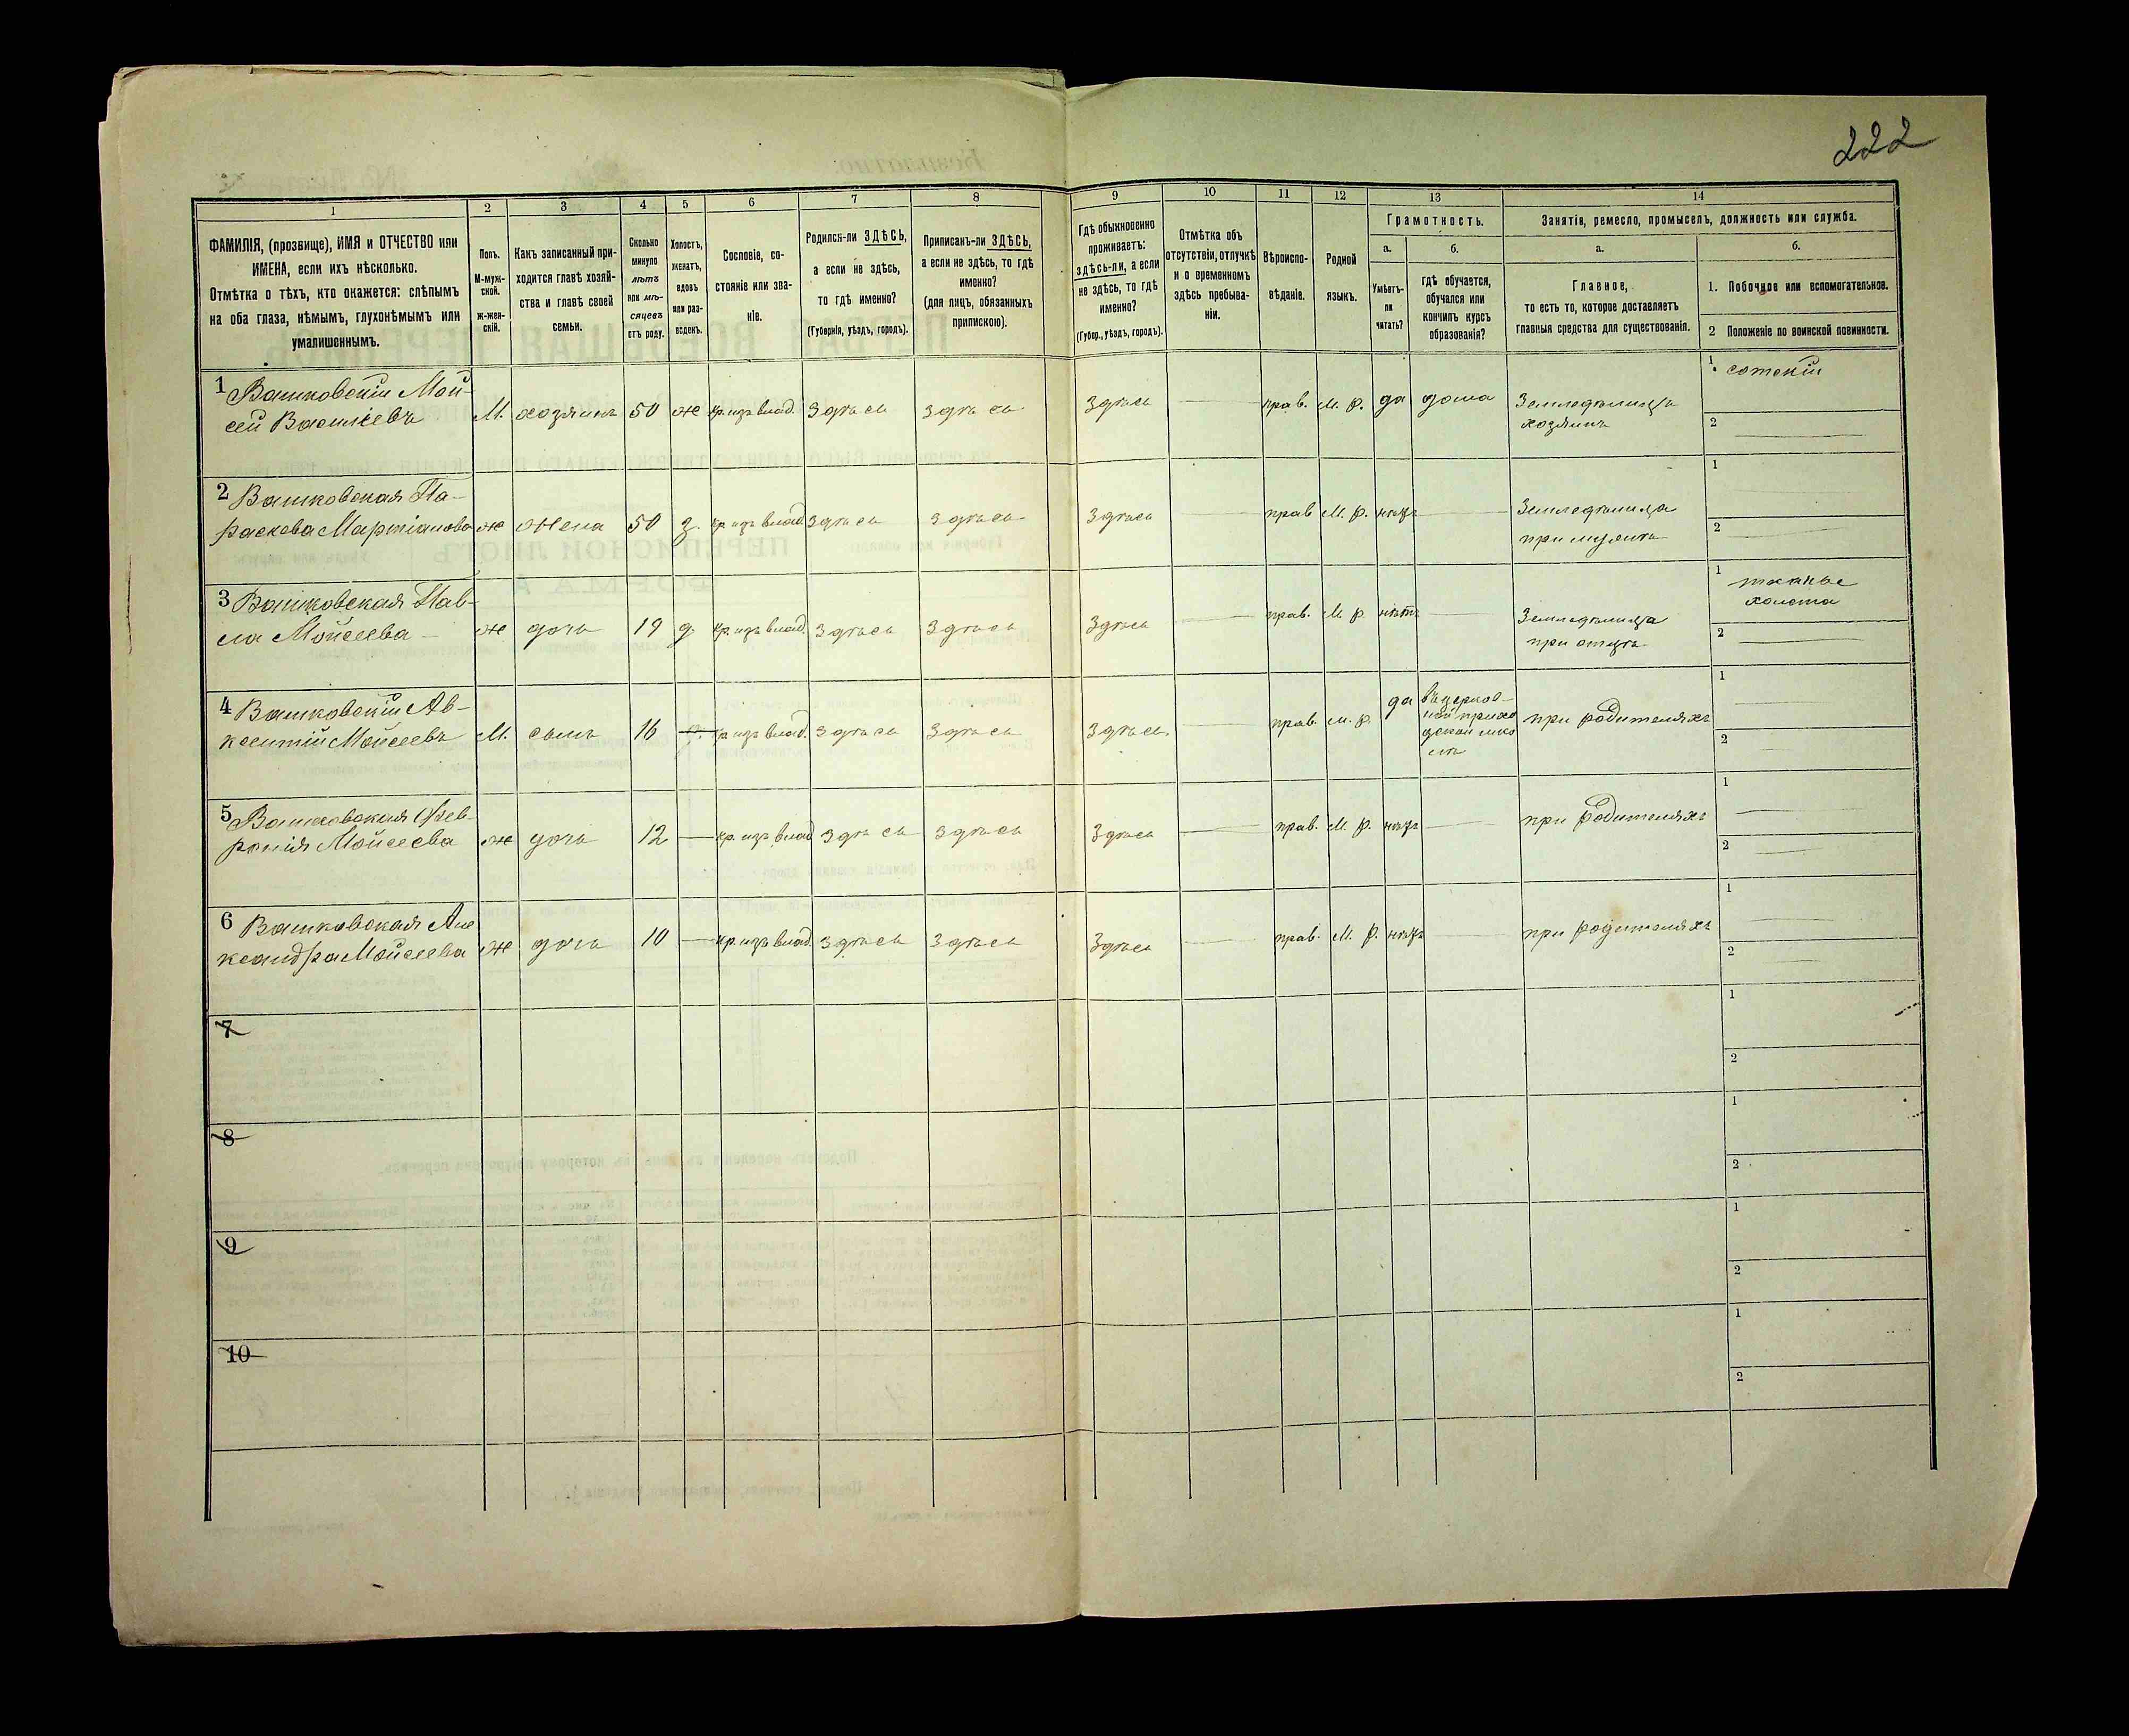 222
1
2
3
4
5
6
7
8
9
10
11
12
13
14
ФАМИЛІЯ, (прозвище), ИМЯ и ОТЧЕСТВО или
ИМЕНА, если ихъ нѣсколько.
Отмѣтка о тѣхъ, кто окажется: слѣпымъ
на оба глаза, нѣмымъ, глухонѣмымъ или
умалишеннымъ.
Полъ.
М-муж-
ской.
ж-жен-
скій.
Какъ записанный при-
ходится главѣ хозяй-
ства и главѣ своей
семьи.
Сколько
минуло
лѣтъ
или мѣ-
сяцевъ
отъ роду.
Холостъ,
женатъ,
вдовъ
или раз-
веденъ.
Сословіе, со-
стояніе или зва-
ніе.
Родился-ли ЗДѢСЬ,
а если не здѣсь,
то гдѣ именно?
(Губернія, уѣздъ, городъ).
Приписанъ-ли ЗДѢСЬ,
а если не здѣсь, то гдѣ
именно?
(для лицъ, обязанныхъ
припискою).
Гдѣ обыкновенно
проживаетъ:
здѣсь-ли, а если
не здѣсь, то гдѣ
именно?
(Губер., уѣздъ, городъ).
Отмѣтка объ
отсутствіи, отлучкѣ
и о временномъ
здѣсь пребыва-
ніи.
Вѣроиспо-
вѣданіе.
Родной
языкъ.
Грамотность.
а.
Умѣетъ-
ли
читать?
б.
гдѣ обучается,
обучался или
кончилъ курсъ
образованія?
Занятія, ремесло, промыселъ, должность или служба.
а.
Главное,
то есть то, которое доставляетъ
главныя средства для существованія.
б.
1. Побочное или вспомогательное.
2 Положеніе по воинской повинности.
1 Вашковскій Мой-
сей Васильевъ
М. хозяинъ 50 ж кр. изъ влад. Здѣсь здѣсь Здѣсь прав. М. р. да дома Земледѣлецъ
хозяинъ
1. сотскій
2
2 Вашковская Па-
раскева Мартіанова ж жена 50 з. кр. изъ влад. здѣсь здѣсь Здѣсь прав М. р. нѣтъ Земледѣлица
при мужѣ
1
2
3 Вашковская Пав-
ла Мойсеева ж дочь 19 д. кр. изъ влад. здѣсь здѣсь Здѣсь прав. М. р. нѣтъ Земледѣлица
при отцѣ
1 тканье
холста
2
4 Вашковскій Ав-
ксентій Мойсеевъ М. сынъ 16 кр. изъ влад. здѣсь здѣсь Здѣсь. прав. м. р. да въ церков-
ной прихо
дской шко
лѣ
при родителяхъ
1
2
5 Вашковская Фев-
ронія Мойсеева ж дочь 12 кр. изъ влад здѣсь здѣсь Здѣсь прав. М. р. нѣтъ при родителяхъ
1
2
6 Вашковская Але
ксандра Мойсеева ж дочь 10 кр. изъ влад. здѣсь здѣсь Здѣсь прав. М. р. нѣтъ при родителяхъ
1
2
7
1
2
8
1
2
9
1
2
10
1
2